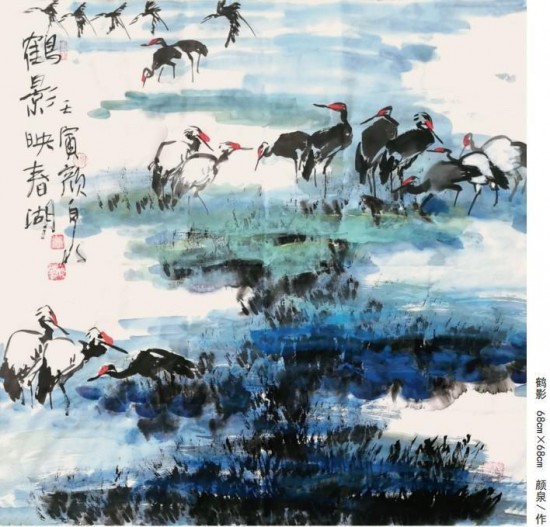 鹤影映春湖
壬寅颜泉
鹤影 68cm×68cm 颜泉/作